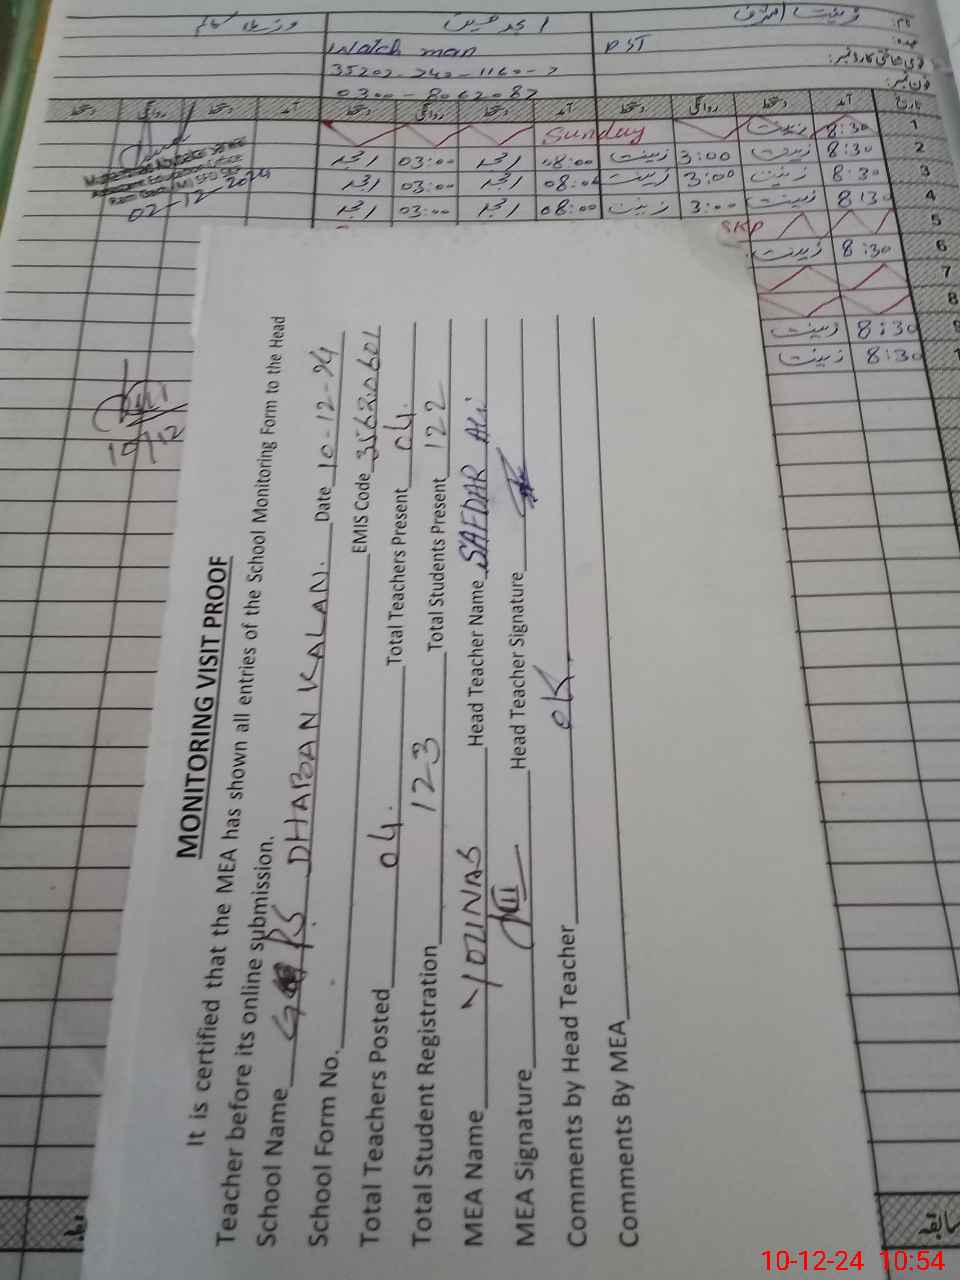 زینت اشرف
نام:
عہدہ:
PST
Watch man
35202-240-1160-7
0300-8062087
تاریخ آمد دستخط روانگی دستخط آمد دستخط روانگی دستخط آمد دستخط روانگی دستخط
1 8:30 زینت Sunday
2 8:30 زینت 3:00 زینت 08:00 امجد 03:00 امجد
3 8:30 زینت 3:00 زینت 08:00 امجد 03:00 امجد
4 8:30 زینت 3:00 زینت 08:00 امجد 03:00 امجد
5
6 8:30 زینت
7
8
8:30 زینت
8:30 زینت
02-12-2024
10/12
MONITORING VISIT PROOF
It is certified that the MEA has shown all entries of the School Monitoring Form to the Head
Teacher before its online submission.
School Name PS DHABAN KALAN. Date 10-12-24
School Form No. EMIS Code 35620601
Total Teachers Posted 04. Total Teachers Present 04.
Total Student Registration 123 Total Students Present 122
MEA Name Head Teacher Name SAFDAR Ali
MEA Signature Head Teacher Signature
Comments by Head Teacher ok.
Comments By MEA
10-12-24 10:54